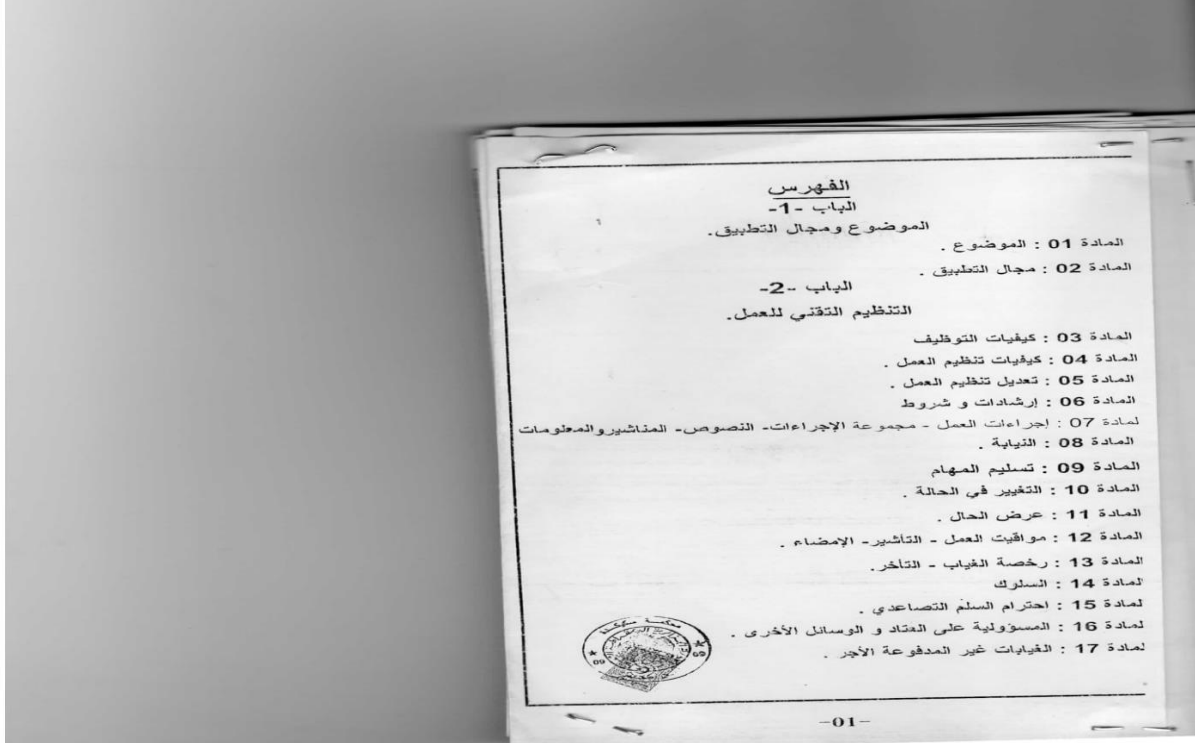 الفهرس
الباب -1-
الموضوع ومجال التطبيق.
المادة 01 : الموضوع .
المادة 02 : مجال التطبيق .
الباب -2-
التنظيم التقني للعمل.
المادة 03 : كيفيات التوظيف
المادة 04 : كيفيات تنظيم العمل .
المادة 05 : تعديل تنظيم العمل .
المادة 06 : إرشادات و شروط
لمادة 07 : إجراءات العمل - مجموعة الإجراءات- النصوص- المناشيروالمعلومات
المادة 08 : النيابة .
المادة 09 : تسليم المهام
المادة 10 : التغيير في الحالة .
المادة 11 : عرض الحال .
المادة 12 : مواقيت العمل - التأشير- الإمضاء .
المادة 13 : رخصة الغياب - التأخر.
لمادة 14 : السلوك
لمادة 15 : احترام السلم التصاعدي .
لمادة 16 : المسؤولية على العتاد و الوسائل الأخرى .
لمادة 17 : الغيابات غير المدفوعة الأجر .
محكمة سكيكدة
09
-01-